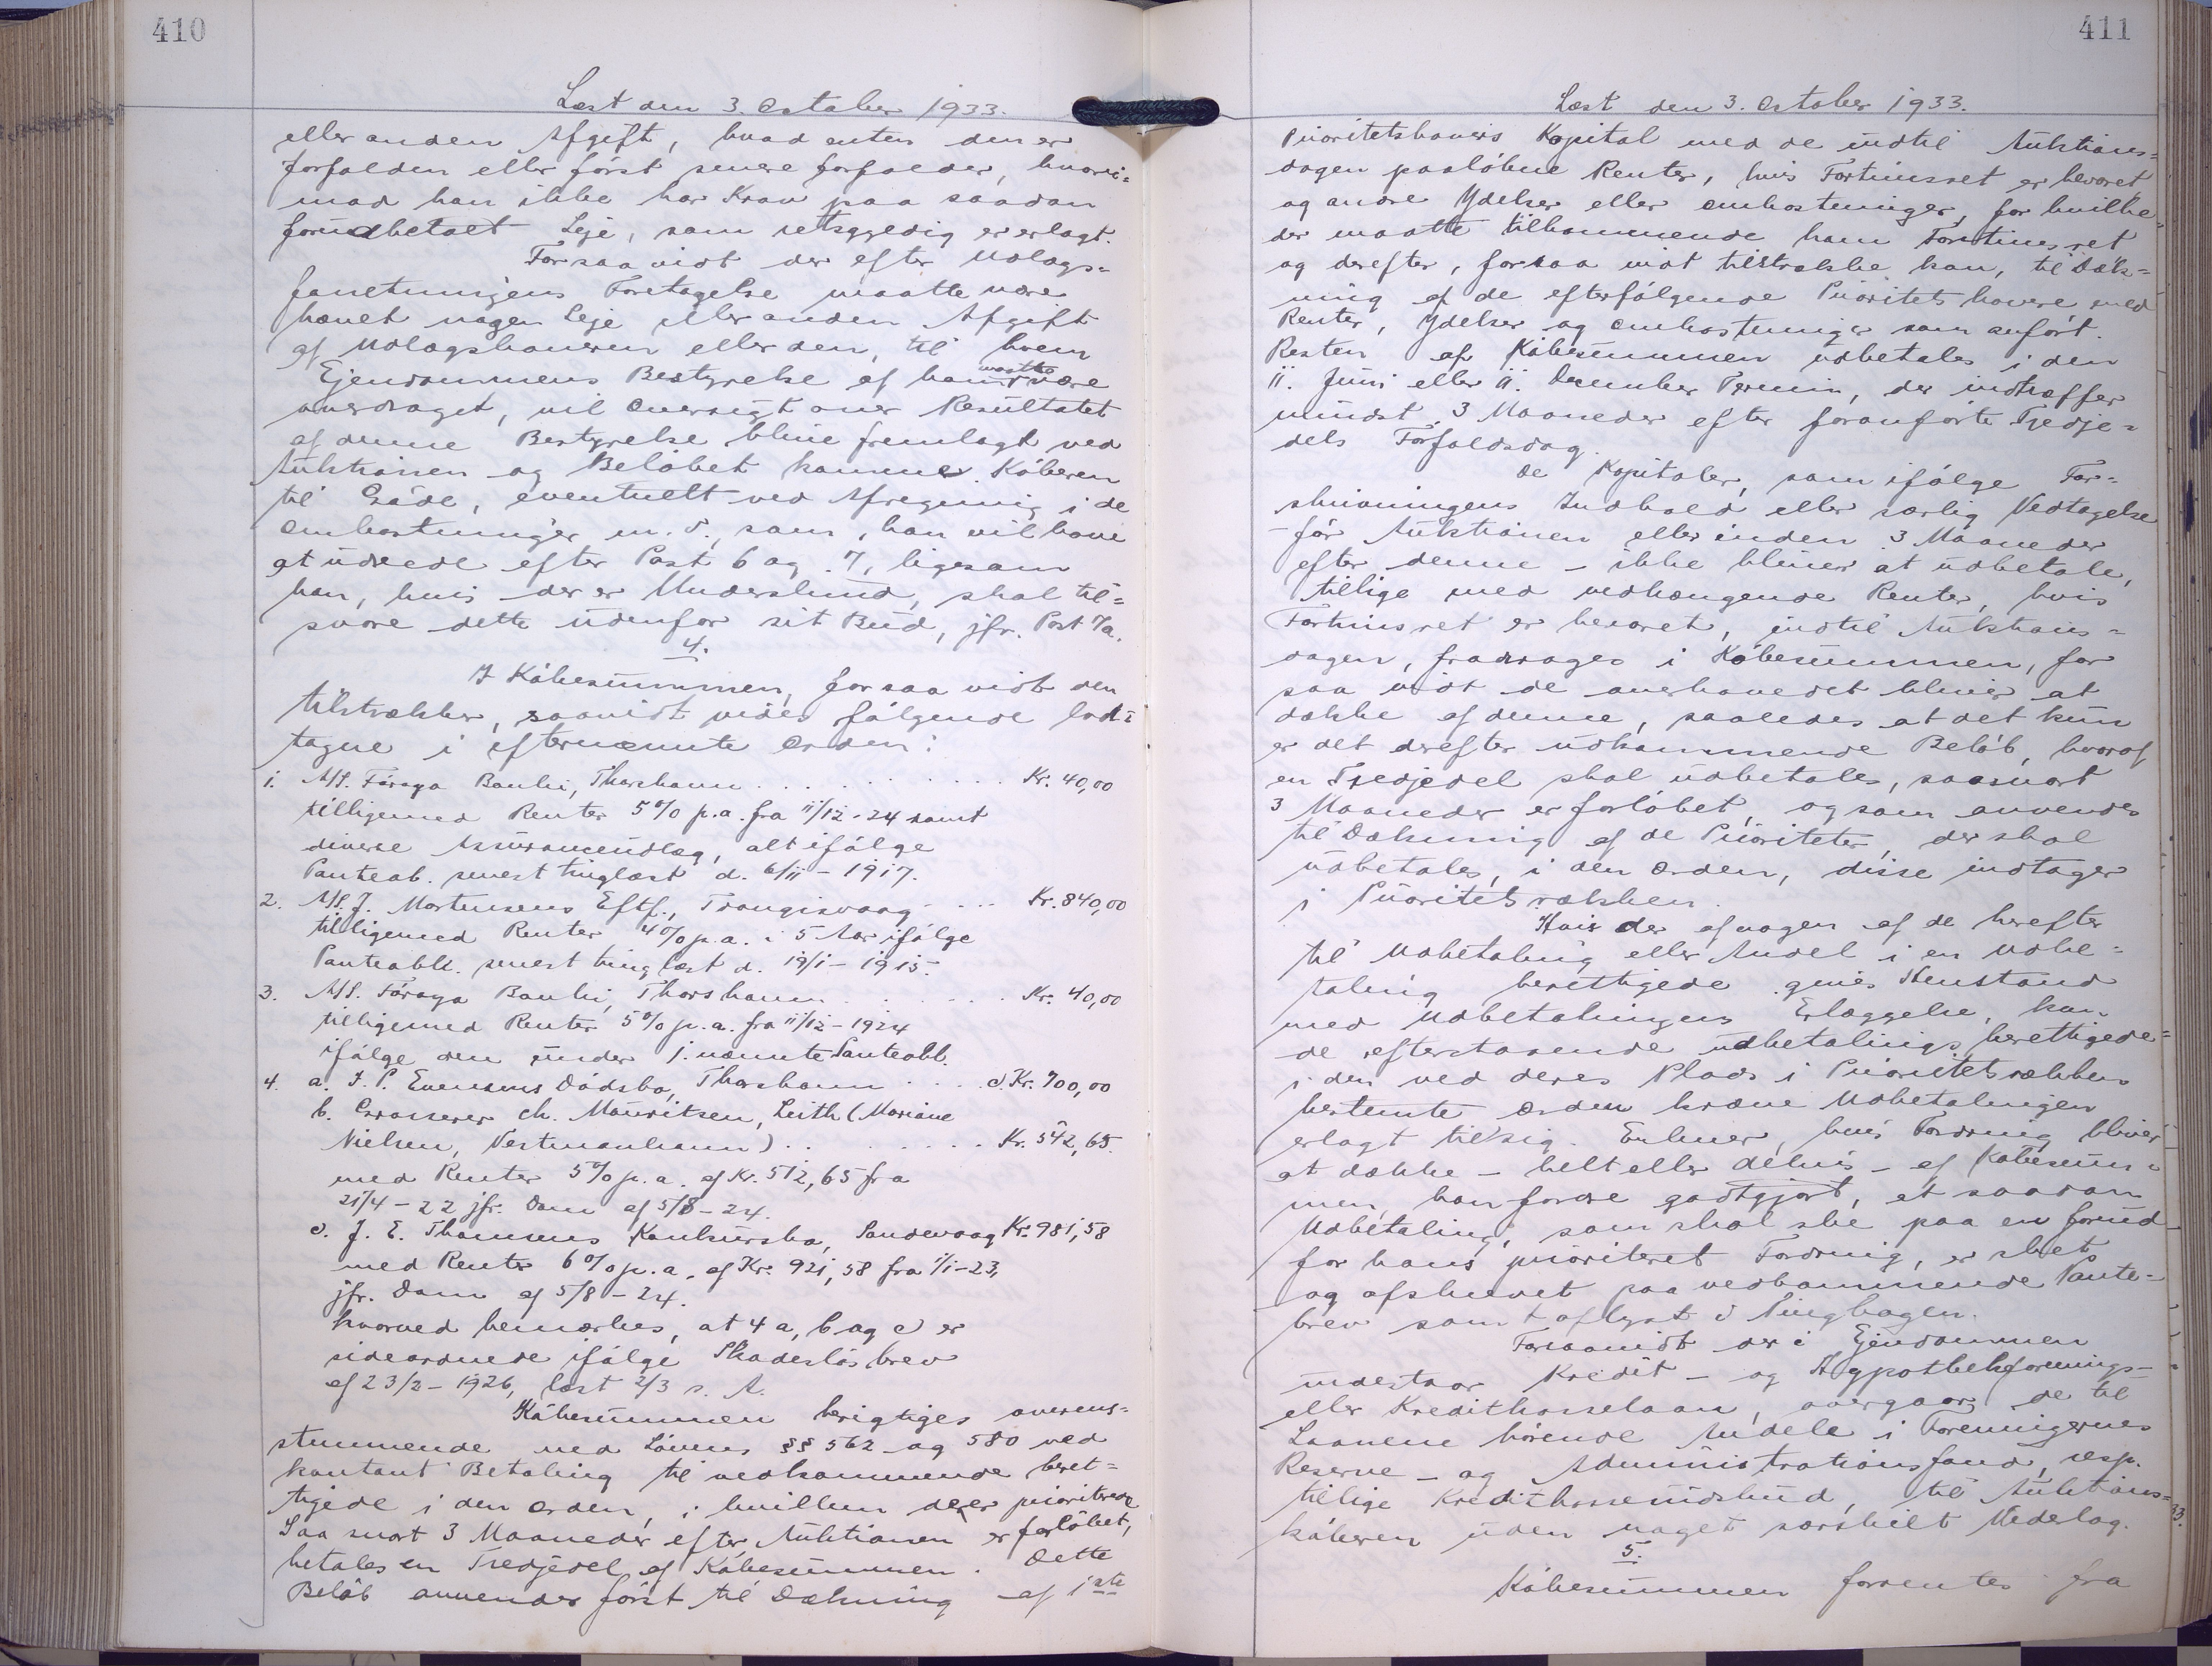 410
Læst den 3. October 1933.
eller anden Afgift, hvad enten den er
forfalden eller først senere forfalder, hvori-
mod han ikke har Krav paa saadan
forudbetalt Leje, som retsgyldig er erlagt.
Forsaavidt der efter Udlægs-
forretningens Foretagelse maatte være
hævet nogen Leje eller anden Afgift
af Udlægshaveren eller den, til hvem
Ejendommens Bestyrelse af ham maatte være
overdraget, vil Oversigt over Resultatet
af denne Bestyrelse blive fremlagt ved
Auktionen og Beløbet komme Køberen
til Gode, eventuelt ved Afregning i de
Omkostninger m.v., som han vil have
at udrede efter Post 6 og 7, ligesom
han, hvis der er Underskud, skal til-
svare dette udenfor sit Bud, jfr. Post 7a.
4.
I Købesummen, forsaavidt den
tilstrækker, saavidt vides følgende lod-
tagne i efternævnte Orden:
1. A/S. Føroya Banki, Thorshavn . . . . . . . . . Kr. 40,00
tilligemed Renter 5% p.a. fra 11/12-24 samt
diverse Assuranceudlæg, alt ifølge
Panteob. senest tinglæst d. 6/11-1917.
2. A/S. J. Mortensens Eftf., Trangisvaag . . . . Kr. 840,00
tilligemed Renter 4% p.a. i 5 Aar ifølge
Panteobl. senest tinglæst d. 19/1-1915.
3. A/S. Føroya Banki, Thorshavn . . . . . . Kr. 40,00
tilligemed Renter 5% p.a. fra 11/12-1924
ifølge den under 1. nævnte Panteobl.
4. a. J. P. Evensens Dødsbo, Thorshavn . . . . c. Kr. 700,00
b. Grosserer Ch. Mouritsen, Leith (Mariane
Nielsen, Vestmanhavn) . . . . . . . . Kr. 542,65.
med Renter 5% p.a. af Kr. 512,65 fra
21/4-22 jfr. Dom af 5/8-24.
c. J. E. Thomsens Konkursbo, Sandevaag Kr. 981,58
med Renter 6% p.a. af Kr. 921,58 fra 1/1-23,
jfr. Dom af 5/8-24.
hvorved bemærkes, at 4 a, b og c er
sideordnede ifølge Skadesløsbrev
af 23/2-1926, læst 2/3 s. A.
Købesummen berigtiges overens-
stemmende med Lovens §§ 562 og 580 ved
kontant Betaling til vedkommende beret-
tigede i den Orden, i hvilken de er prioriterede
Saa snart 3 Maaneder efter Auktionen er forløbet,
betales en Tredjedel af Købesummen. Dette
Beløb anvendes først til Dækning af 1ste
411
Læst den 3. October 1933.
Prioritetshavers Kapital med de indtil Auktions-
dagen paaløbne Renter, hvis Fortrinsret er bevaret
og andre Ydelser eller Omkostninger, for hvilke
der maatte tilkommende ham Fortrinsret
og derefter, forsaa vidt tilstrække kan, til Dæk-
ning af de efterfølgende Prioritetshavere med
Renter, Ydelser og Omkostninger som anført.
Resten af Købesummen udbetales i den
11. Juni eller 11. December Termin, der indtræffer
mindst 3 Maaneder efter foranførte Tredje-
dels Forfaldsdag.
De Kapitaler, som ifølge For-
skrivningens Indhold eller særlig Vedtagelse
- før Auktionen eller inden 3 Maaneder
efter denne - ikke bliver at udbetale,
tillige med vedhængende Renter, hvis
Fortrinsret er bevaret, indtil Auktions-
dagen, fradrages i Købesummen, for
saa vidt de overhovedet bliver at
dække af denne, saaledes at det kun
er det derefter udkommende Beløb, hvoraf
en Tredjedel skal udbetales, saasnart
3 Maaneder er forløbet, og som anvendes
til Dækning af de Prioriteter, der skal
udbetales, i den Orden, disse indtager
i Prioritetsrækken.
Hvis der af nogen af de herefter
til Udbetaling eller Andel i en Udbe-
taling berettigede gives Henstand
med Udbetalingens Erlæggelse, kan
de efterstaaende udbetalingsberettigede
i den ved deres Plads i Prioritetsrækken
bestemte Orden kræve Udbetalingen
erlagt til sig. Enhver, hvis Fordring bliver
at dække - helt eller delvis - af Købesum-
men, kan fordre godtgjort, at saadan
Udbetaling, som skal ske paa en forud
for hans prioriteret Fordring, er sket
og afskrevet paa vedkommende Pante-
brev samt aflyst i Tingbogen.
Forsaavidt der i Ejendommen
indestaar Kredit- og Hypothekforenings-
eller Kreditkasselaan, overgaar de til
Laanene hørende Andele i Foreningernes
Reserve- og Administrationsfond, resp.
tillige Kreditkasseindskud, til Auktions-
køberen uden noget særskilt Vederlag.
33.
5.
Købesummen forrentes fra